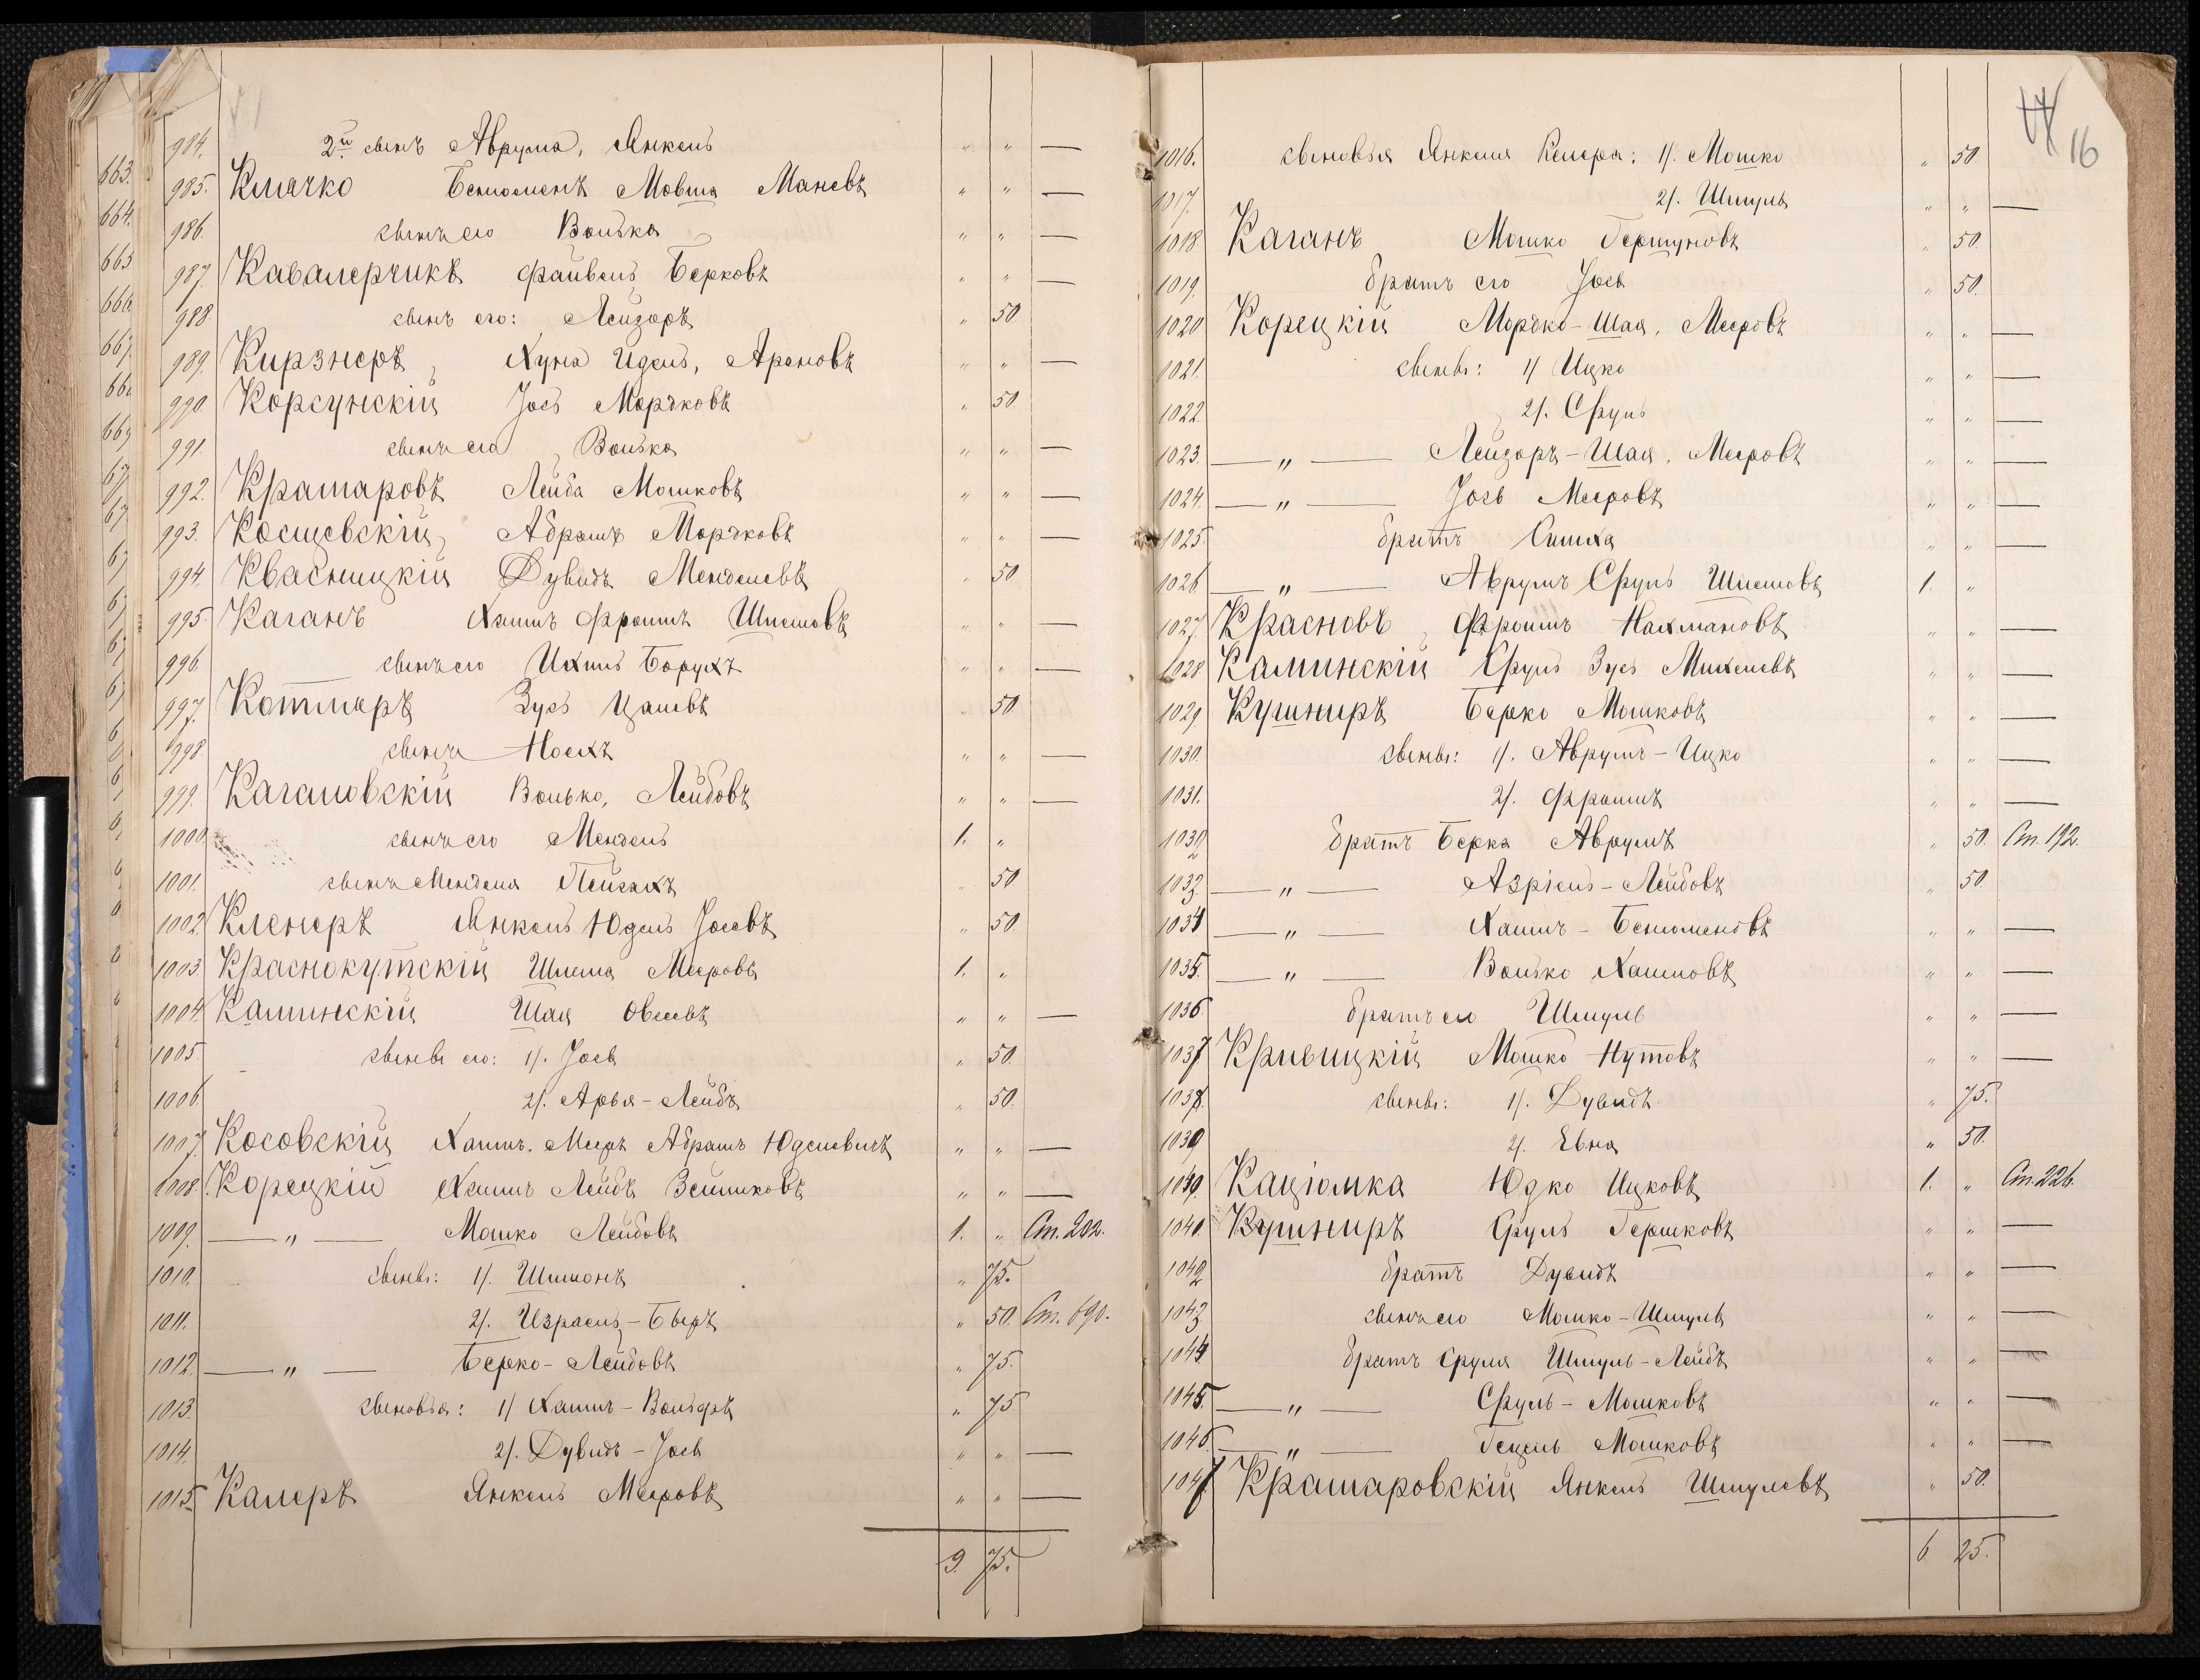 984. 2й сынъ Аврума, Янкель " " —
985. Клачко Беньоменъ Мовша Маневъ " " —
986. сынъ его Волька " " —
987. Кавалерчикъ Файвель Берковъ " " —
988. сынъ его: Лейзоръ " 50
989. Кирзнеръ, Хуна Идель, Ароновъ " " —
990 Корсунскій Іось Мордковъ " 50
991. сынъ его Волька " " —
992. Крамаровъ Лейба Мошковъ " " —
993. Косцевскій, Абрамъ Мордковъ " " —
994. Квасницкій Дувидъ Менделевъ " 50
995. Каганъ Хаимъ Фроимъ Шлемовъ " " —
996 сынъ его Ихиль Борухъ " " —
997. Котляръ Зусь Цалевъ " 50
998 сынъ Ноехъ " " —
999. Кагановскій Волько, Лейбовъ " " —
1000 сынъ его Мендель 1. "
1001. сынъ Менделя Пейсахъ " 50
1002. Кленеръ Янкель Юдель Іосевъ " 50
1003 Краснокутскій Шлема Мееровъ 1. "
1004. Каминскій Шая Овсевъ " " —
1005. сыновъ его: 1/. Іось " 50
1006. 2/. Арья-Лейбъ " 50.
1007. Косовскій Хаимъ. Мееръ Абрамъ Юделевичъ " " —
1008. Корецкій Хаимъ Лейбъ Зеликовъ " " —
1009. —"— Мошко Лейбовъ 1. " Ст. 202.
1010. сыновъ: 1/. Шимонъ " 75.
1011. 2/. Израель-Беръ " 50. Ст. 690.
1012. —"— Берко-Лейбовъ " 75.
1013. сыновья: 1/ Хаимъ-Вольфъ " 75
1014. 2/. Дувидъ-Іось " " —
1015. Калеръ Янкель Мееровъ " " —
9. 75.
16
1016. сыновья Янкеля Келера: 1/. Мошко " 50
1017. 2/. Шмуль " " —
1018 Каганъ Мошко Гершуновъ " 50.
1019. братъ его Іось " 50.
1020 Корецкій Мордко-Шая, Мееровъ " " —
1021. сыновъ: 1/ Ицко " " —
1022. 2/. Сруль " " —
1023. —"— Лейзоръ-Шая, Мееровъ " " —
1024. —"— Іось Мееровъ " " —
1025. братъ Симха " " —
1026 —"— Аврумъ Сруль Шлемовъ 1. "
1027 Красновъ, Фроимъ Нахмановъ " " —
1028 Каминскій Сруль Зусь Михелевъ " " —
1029 Кушниръ Берко Мошковъ " " —
1030. сыновъ: 1/. Аврумъ-Ицко " " —
1031. 2/. Фроимъ " " —
1032 братъ Берка Аврумъ " 50. Ст. 192.
1033 —"— Азріель-Лейбовъ " 50.
1034 —"— Хаимъ-Беньоменовъ " " —
1035. —"— Волько Хаимовъ " " —
1036 братъ его Шмуль " " —
1037 Кривицкій Мошко Нутовъ " " —
1038. сыновъ: 1/. Дувидъ " 75.
1039 2/. Евна " 50.
1040. Каціомка Юдко Ицковъ 1. " Ст. 226.
1040. Кушниръ Сруль Гершковъ " " —
1042 братъ Дувидъ " " —
1043 сынъ его Мошко-Шмуль " " —
1044 братъ Сруля Шмуль-Лейбъ " " —
1045 —"— Сруль-Мошковъ " " —
1046. —"— Гецель Мошковъ " " —
1047 Крамаровскій Янкель Шмулевъ " 50.
6 25.